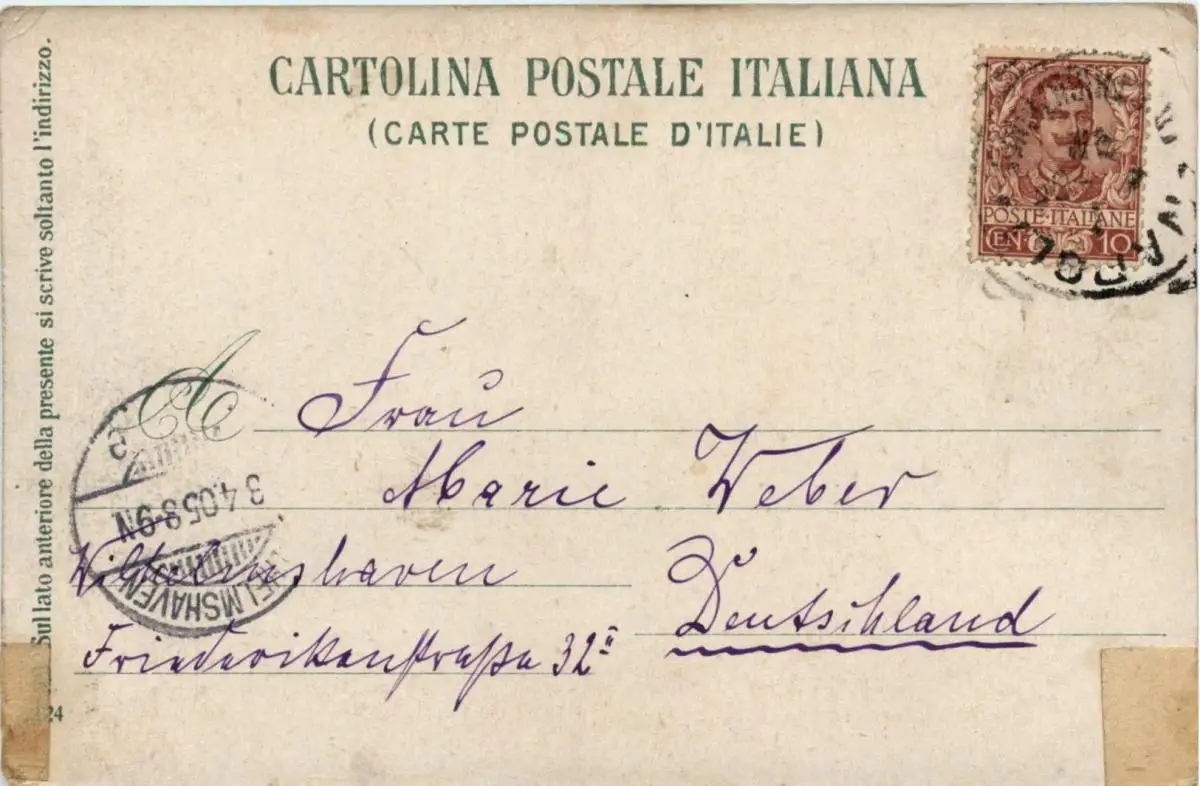 CARTOLINA POSTALE ITALIANA
(CARTE POSTALE D'ITALIE)
POSTE·ITALIANE
CEN. 10
NAPOLI
Sul lato anteriore della presente si scrive soltanto l'indirizzo.
A
Frau
Marie Weber
Wilhelmshaven
Deutschland
Friederikenstraße 32
3 4.05 8-9N
WILHELMSHAVEN
24